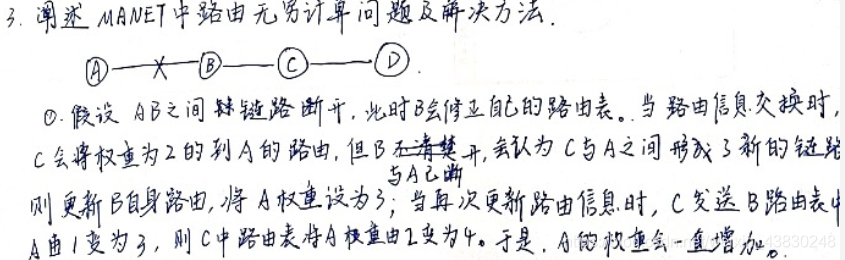 3. 阐述 MANET中路由无穷计算问题及解决方法.
A B C D
①. 假设 AB之间链路断开, 此时B会修正自己的路由表。当路由信息交换时,
C会将权重为2的到A的路由, 但B与A已断开, 会认为C与A之间形成了新的链路
则更新B自身路由, 将A权重设为3; 当再次更新路由信息时, C发送B路由表中
A由1变为3, 则C中路由表将A权重由2变为4。于是, A的权重会一直增加。
43830248